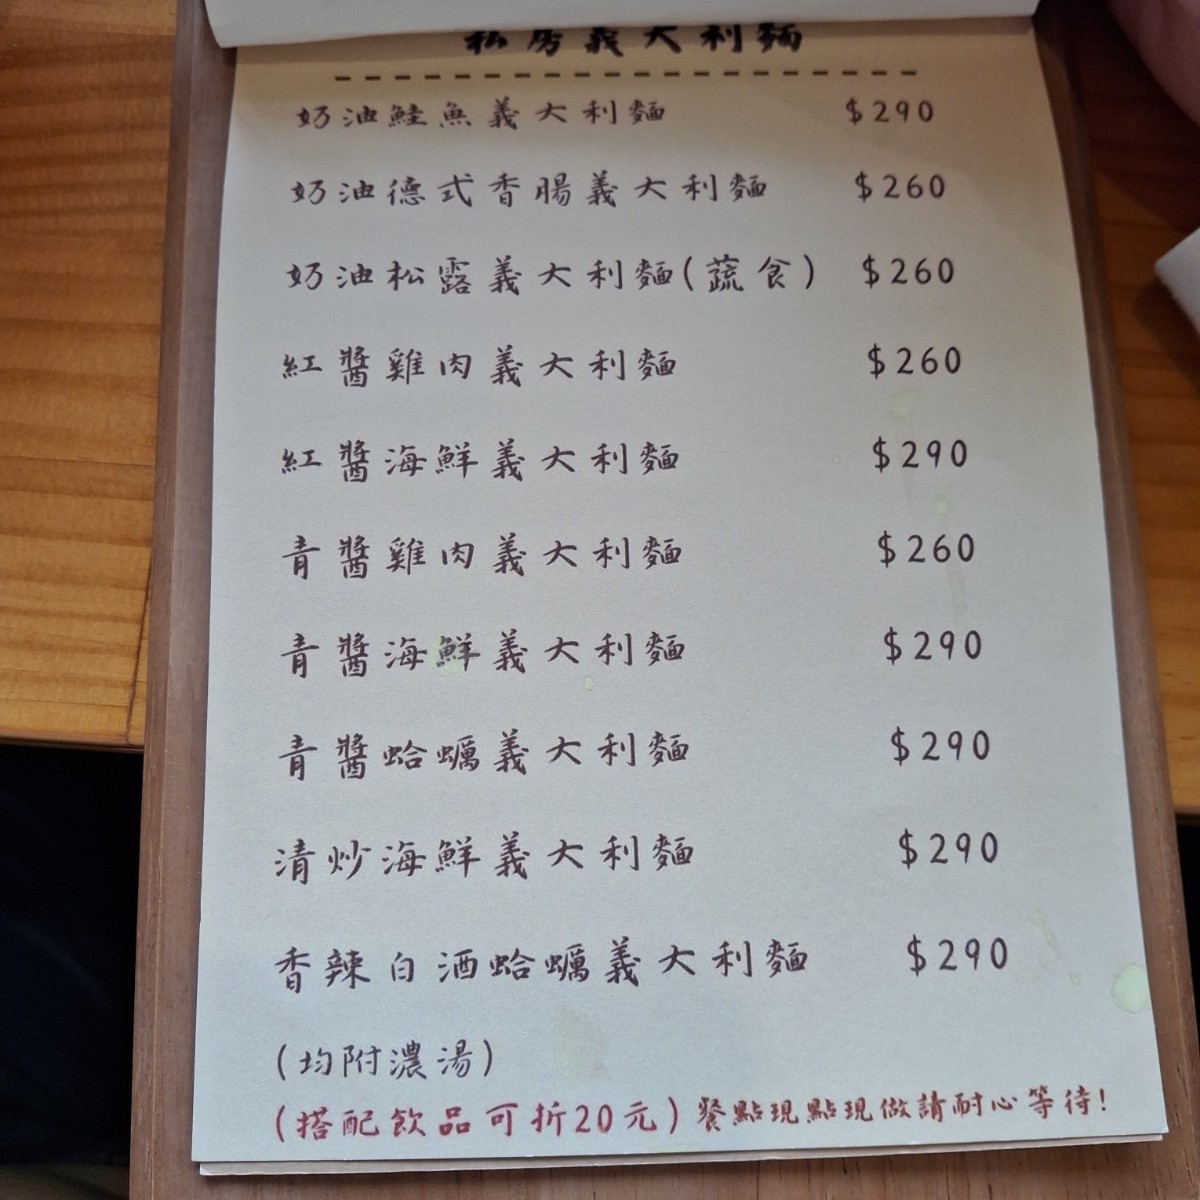 私房義大利麵
奶油鮭魚義大利麵 $290
奶油德式香腸義大利麵 $260
奶油松露義大利麵(蔬食) $260
紅醬雞肉義大利麵 $260
紅醬海鮮義大利麵 $290
青醬雞肉義大利麵 $260
青醬海鮮義大利麵 $290
青醬蛤蠣義大利麵 $290
清炒海鮮義大利麵 $290
香辣白酒蛤蠣義大利麵 $290
(均附濃湯)
(搭配飲品可折20元)餐點現點現做請耐心等待!